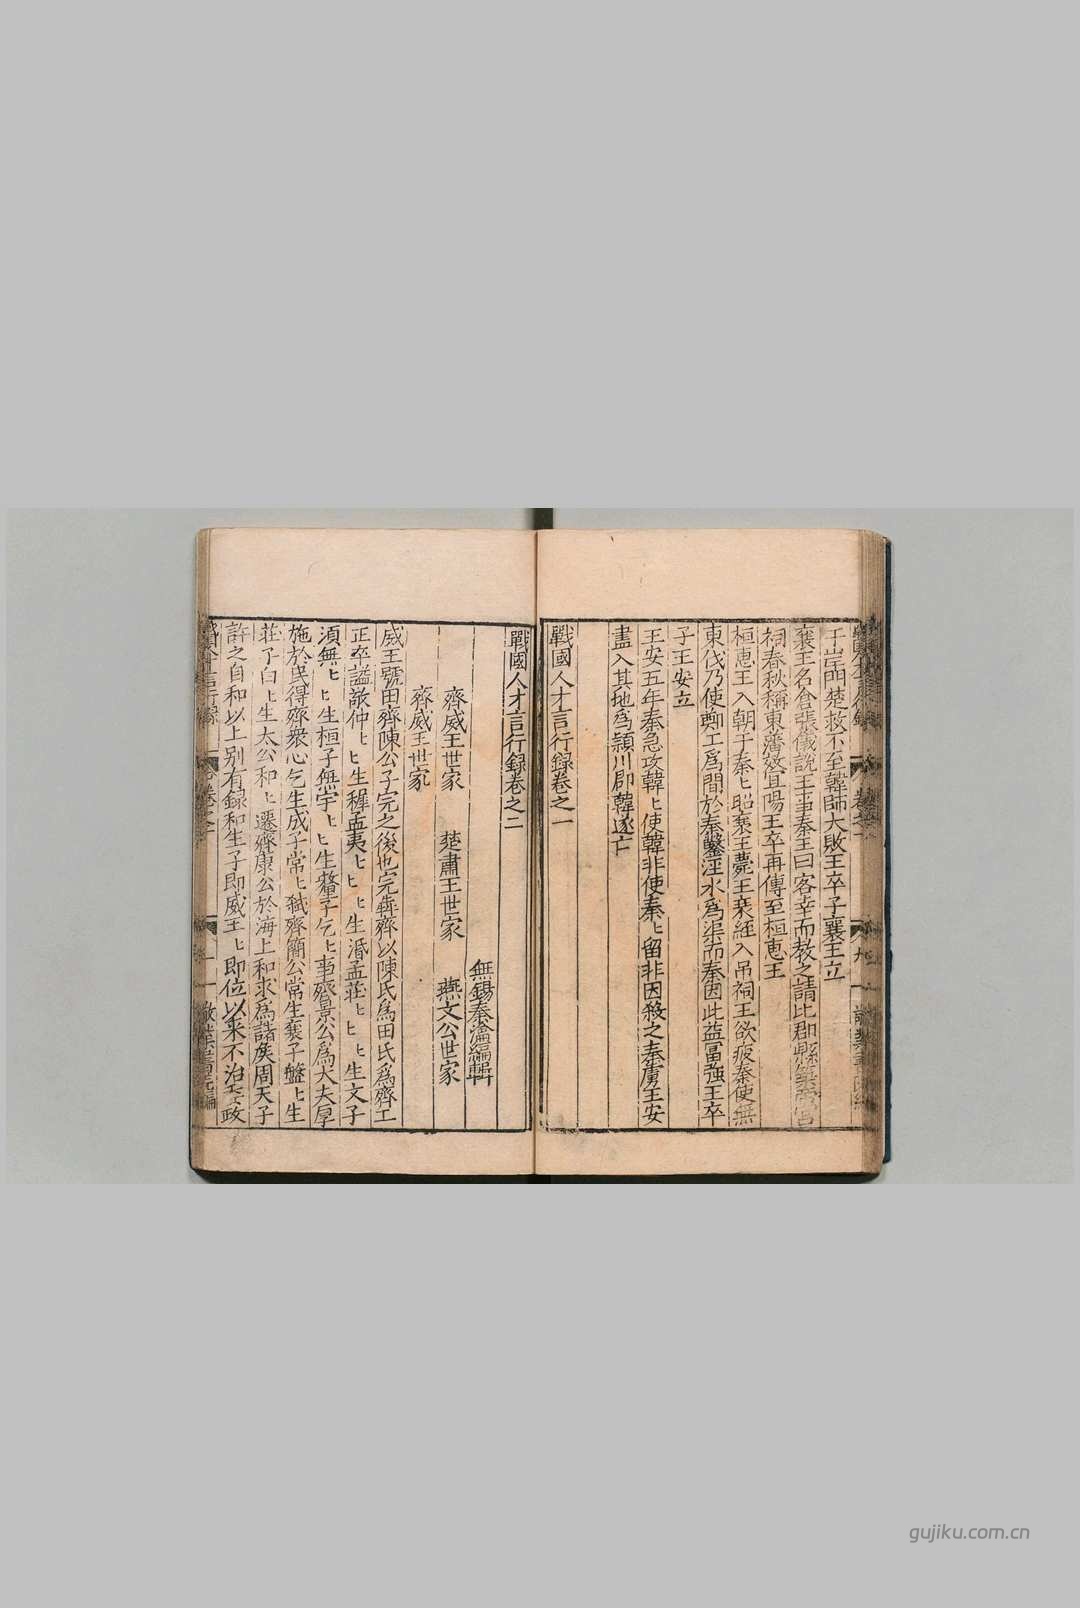 于岸門楚救不至韓師大敗王卒子襄王立
襄王名倉張儀說王事秦王曰客幸而教之請比郡縣築帝宮
祠春秋稱東藩效宜陽王卒再傳至桓惠王
桓惠王入朝于秦〻昭襄王薨王衰絰入吊祠王欲疲秦使無
東伐乃使鄭工為間於秦鑿涇水為渠而秦因此益富強王卒
子王安立
王安五年秦急攻韓〻使韓非使秦〻留非因殺之秦虜王安
盡入其地為潁川郡韓遂亡
戰國人才言行録卷之一
戰國人才言行録卷之二
無錫秦瀹編輯
齊威王世家 楚肅王世家 燕文公世家
齊威王世家
威王號田齊陳公子完之後也完犇齊以陳氏為田氏為齊工
正卒謚敬仲〻〻生穉孟夷〻〻〻生湣孟莊〻〻〻生文子
須無〻〻生桓子無宇〻〻生釐子乞〻事齊景公為大夫厚
施於民得齊衆心乞生成子常〻弒齊簡公常生襄子盤〻生
莊子白〻生太公和〻遷齊康公於海上和求為諸矦周天子
許之自和以上别有録和生子即威王〻即位以来不治國政